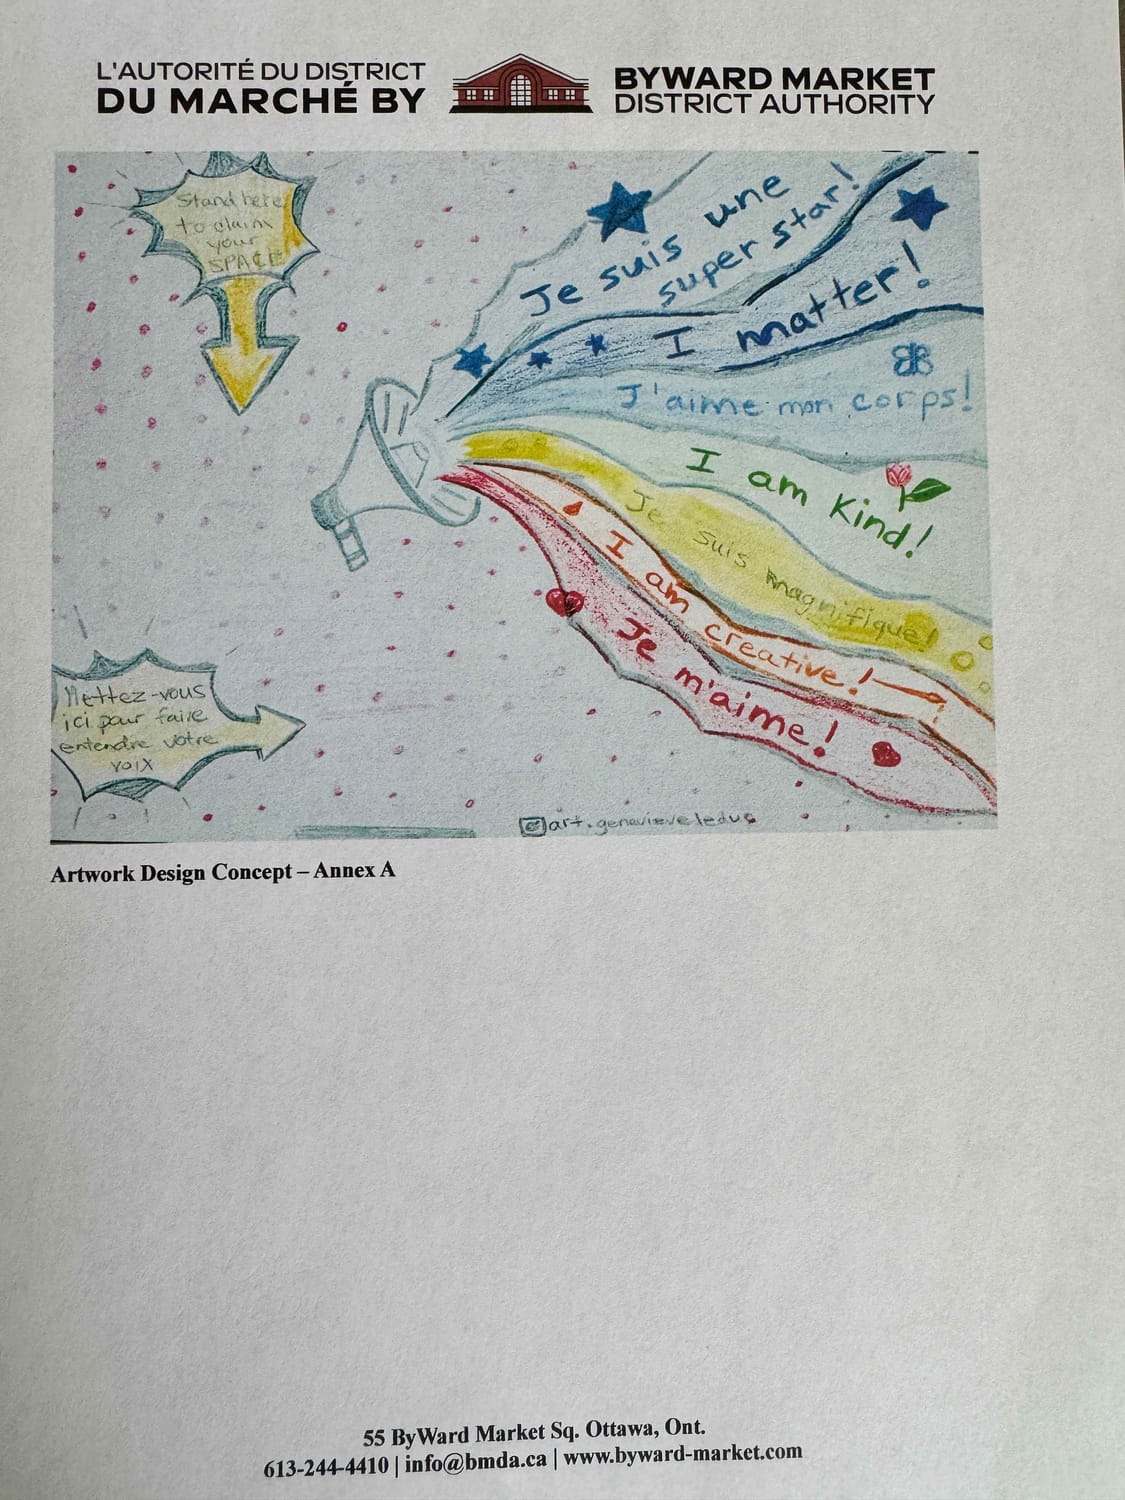 L'AUTORITÉ DU DISTRICT
DU MARCHÉ BY
BYWARD MARKET
DISTRICT AUTHORITY
Stand here
to claim
your
SPACE
Je suis une
super star!
I matter!
J'aime mon corps!
I am kind!
Je suis magnifique!
I am creative!
Je m'aime!
Mettez-vous
ici pour faire
entendre votre
voix
art.genevieveleduc
Artwork Design Concept – Annex A
55 ByWard Market Sq. Ottawa, Ont.
613-244-4410 | info@bmda.ca | www.byward-market.com